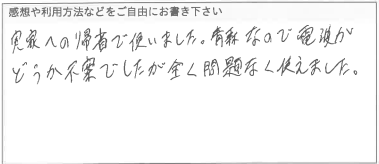 感想や利用方法などをご自由にお書き下さい
実家への帰省で使いました。青森なので電波が
どうか不安でしたが全く問題なく使えました。